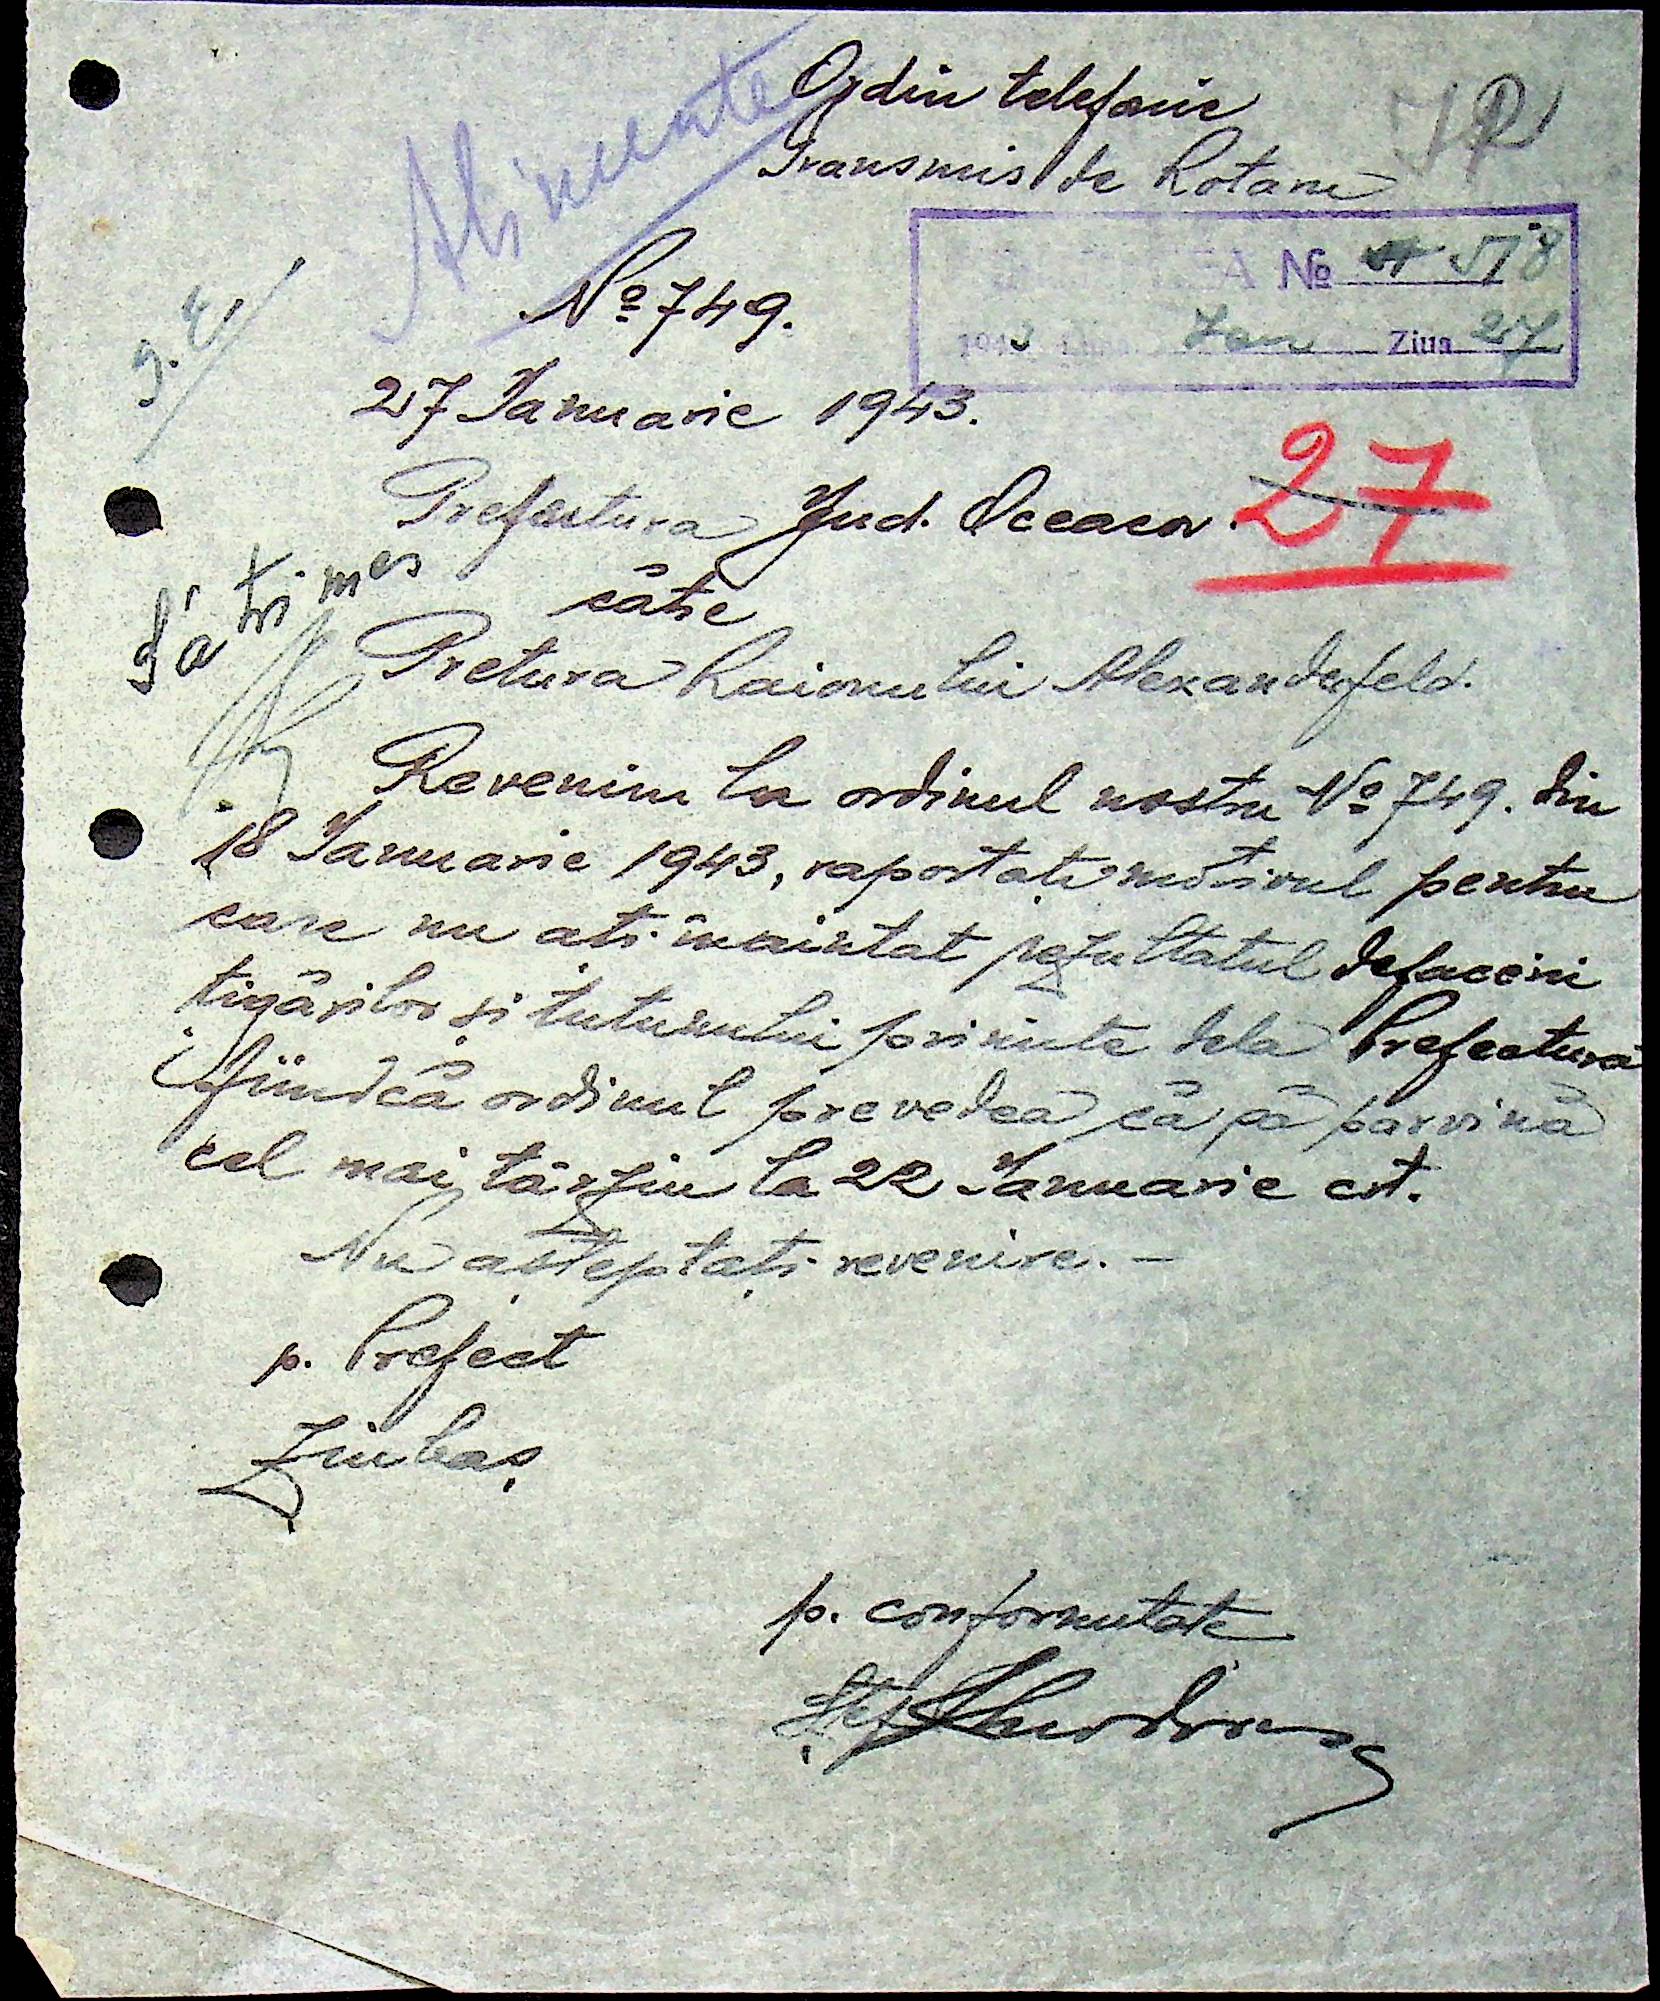 Alimente
Ordin telefonic
Transmis de Rotaru
No 518
1943 Luna Ian Ziua 27
No 749.
27 Ianuarie 1943.
27
Prefectura Jud. Oceacov.
către
Pretura Raionului Alexanderfeld.
S'a trimes
Revenim la ordinul nostru No 749. din
18 Ianuarie 1943, raportați motivul pentru
care nu ați înaintat rezultatul defacerii
țigărilor și tutunului primite dela Prefectură
fiindcă ordinul prevedea că să parvină
cel mai târziu la 22 Ianuarie crt.
Nu așteptați revenire. —
p. Prefect
Zimbaș
p. conformitate
Ștef